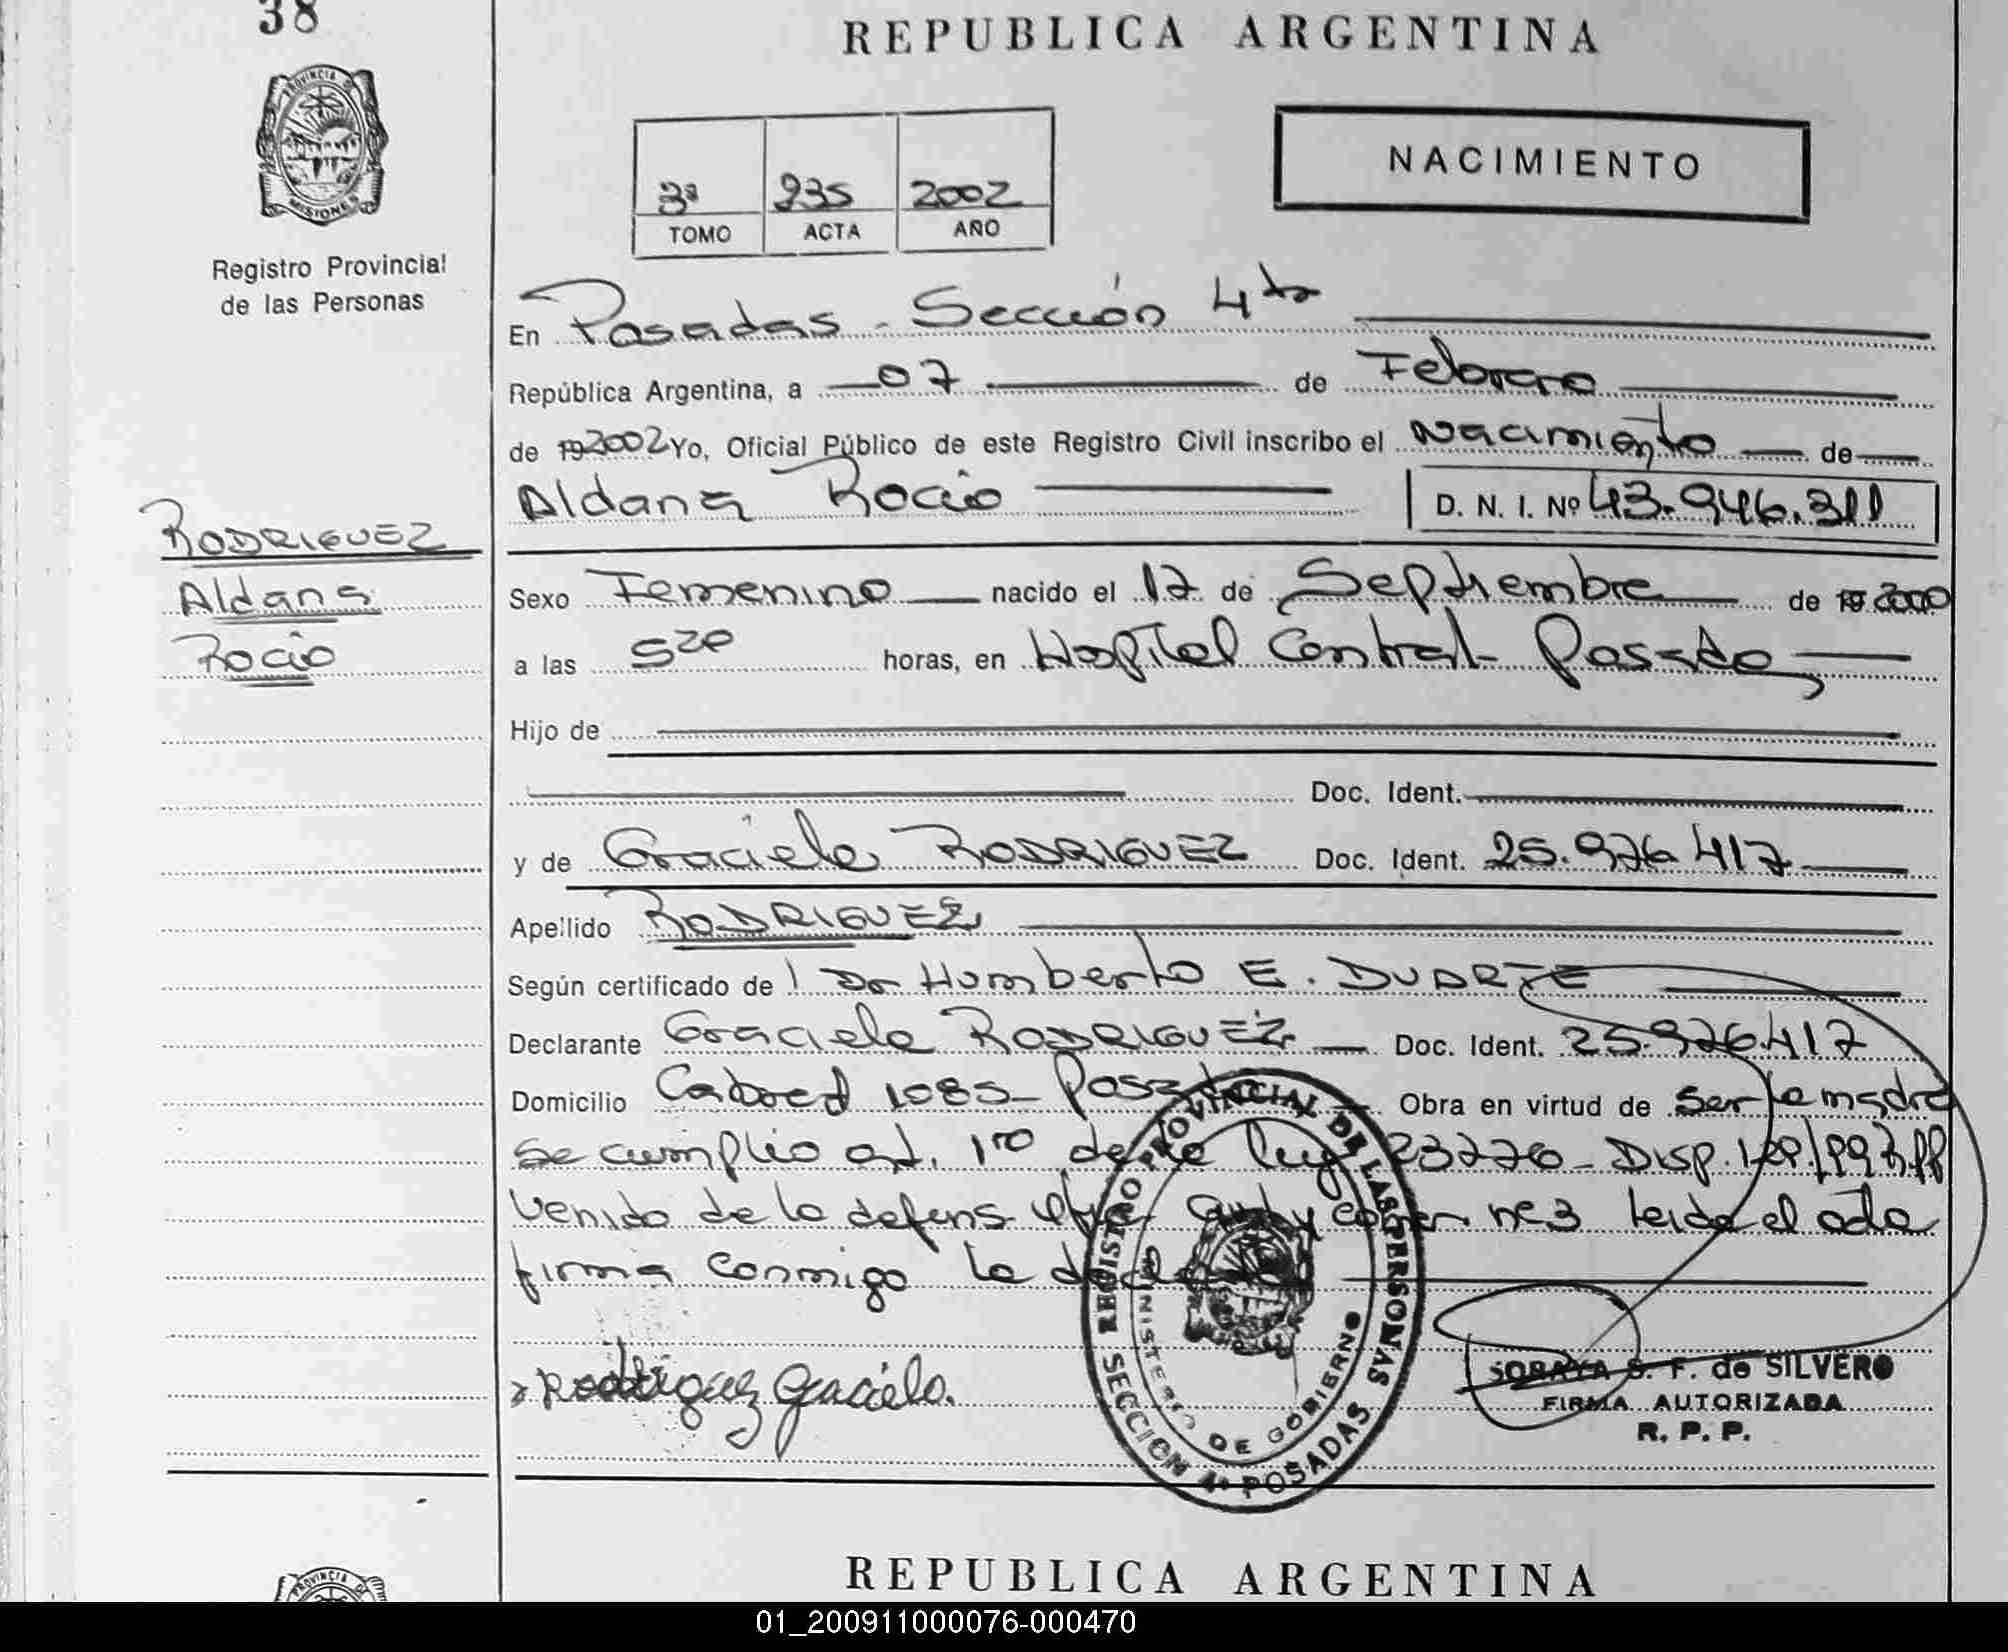 38
REPUBLICA ARGENTINA
PROVINCIA DE MISIONES
Registro Provincial
de las Personas
3ª 235 2002
TOMO ACTA AÑO
NACIMIENTO
En Posadas - Sección 4ta
República Argentina, a 07 de Febrero
de 19 2002 Yo, Oficial Público de este Registro Civil inscribo el Nacimiento de
Aldana Rocio D. N. I. Nº 43.946.311
RODRIGUEZ
Aldana
Rocio
Sexo Femenino nacido el 17 de Septiembre de 19 2000
a las 5 20 horas, en Hospital Central Posadas
Hijo de
Doc. Ident.
y de Graciela RODRIGUEZ Doc. Ident. 25.976.417
Apellido RODRIGUEZ
Según certificado de l Dr Humberto E. DUARTE
Declarante Graciela RODRIGUEZ Doc. Ident. 25.976.417
Domicilio Cabred 1085 - Posadas Obra en virtud de ser la madre
se cumplio art. 1ro de la ley 23776 - Disp.
venido de la defens nº 3 leida el acta
firma conmigo la
Rodriguez Graciela.
REGISTRO PROVINCIAL DE LAS PERSONAS
MINISTERIO DE GOBIERNO
SECCION 4ª POSADAS
SORAYA S. F. de SILVERO
FIRMA AUTORIZADA
R. P. P.
PROVINCIA DE
REPUBLICA ARGENTINA
01_200911000076-000470